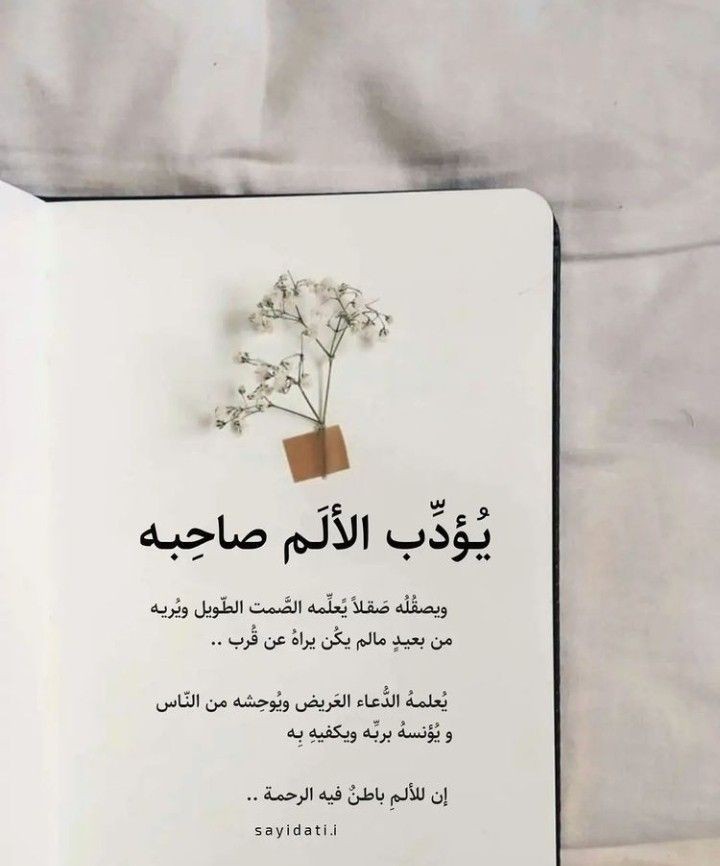 يُؤدِّب الألَم صاحِبه
ويصقُلُه صَقلاً يًعلِّمه الصَّمت الطّويل ويُريه
من بعيدٍ مالم يكُن يراهُ عن قُرب ..
يُعلمهُ الدُّعاء العَريض ويُوحِشه من النّاس
و يُؤنسهُ بربِّه ويكفيهِ بِه
إن للألمِ باطنٌ فيه الرحمة ..
sayidati.i